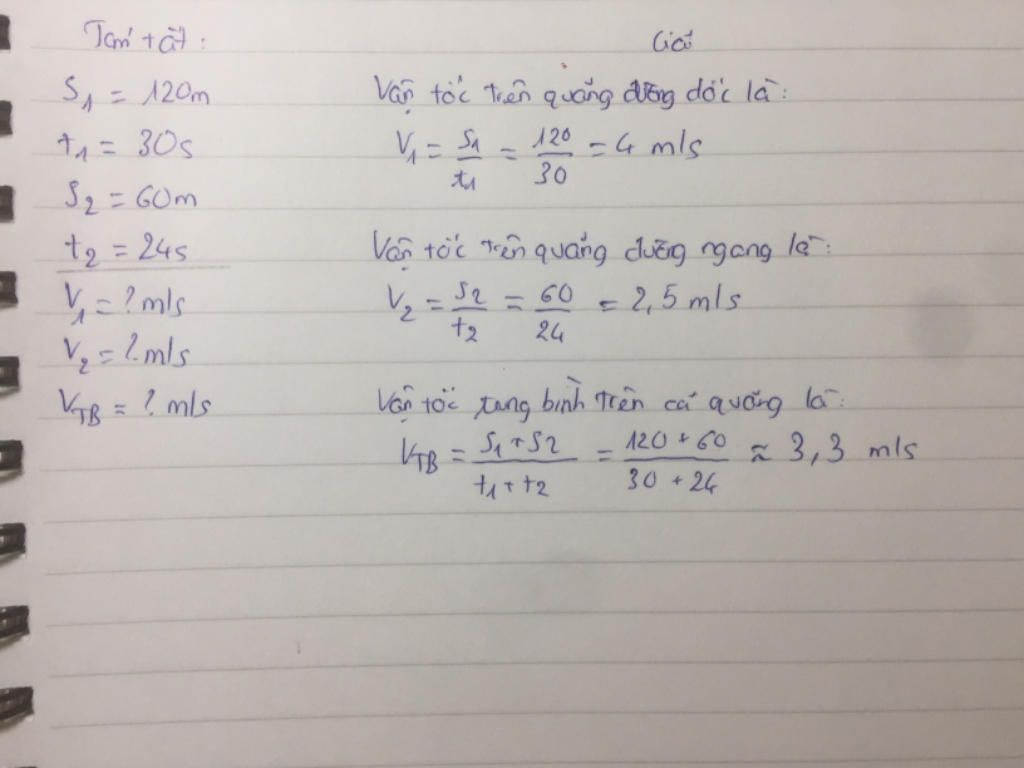 Tóm tắt:
S1 = 120m
t1 = 30s
S2 = 60m
t2 = 24s
V1 = ? m/s
V2 = ? m/s
VTB = ? m/s
Giải
Vận tốc trên quãng đường dốc là:
V1 = S1/t1 = 120/30 = 4 m/s
Vận tốc trên quãng đường ngang là:
V2 = S2/t2 = 60/24 = 2,5 m/s
Vận tốc trung bình trên cả quãng là:
VTB = S1+S2/t1+t2 = 120+60/30+24 ≈ 3,3 m/s